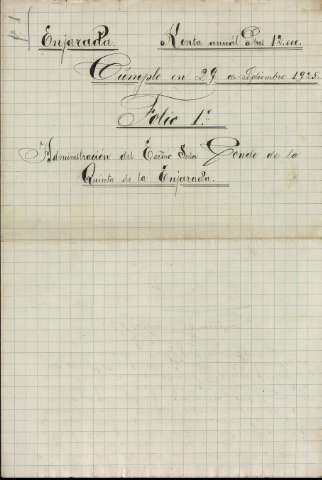 Enjarada. Renta anual Ptas 12.000
Cumple en 29 de Setiembre 1925.
Folio 1º
Administración del Excmo Señor Conde de la
Quinta de la Enjarada.